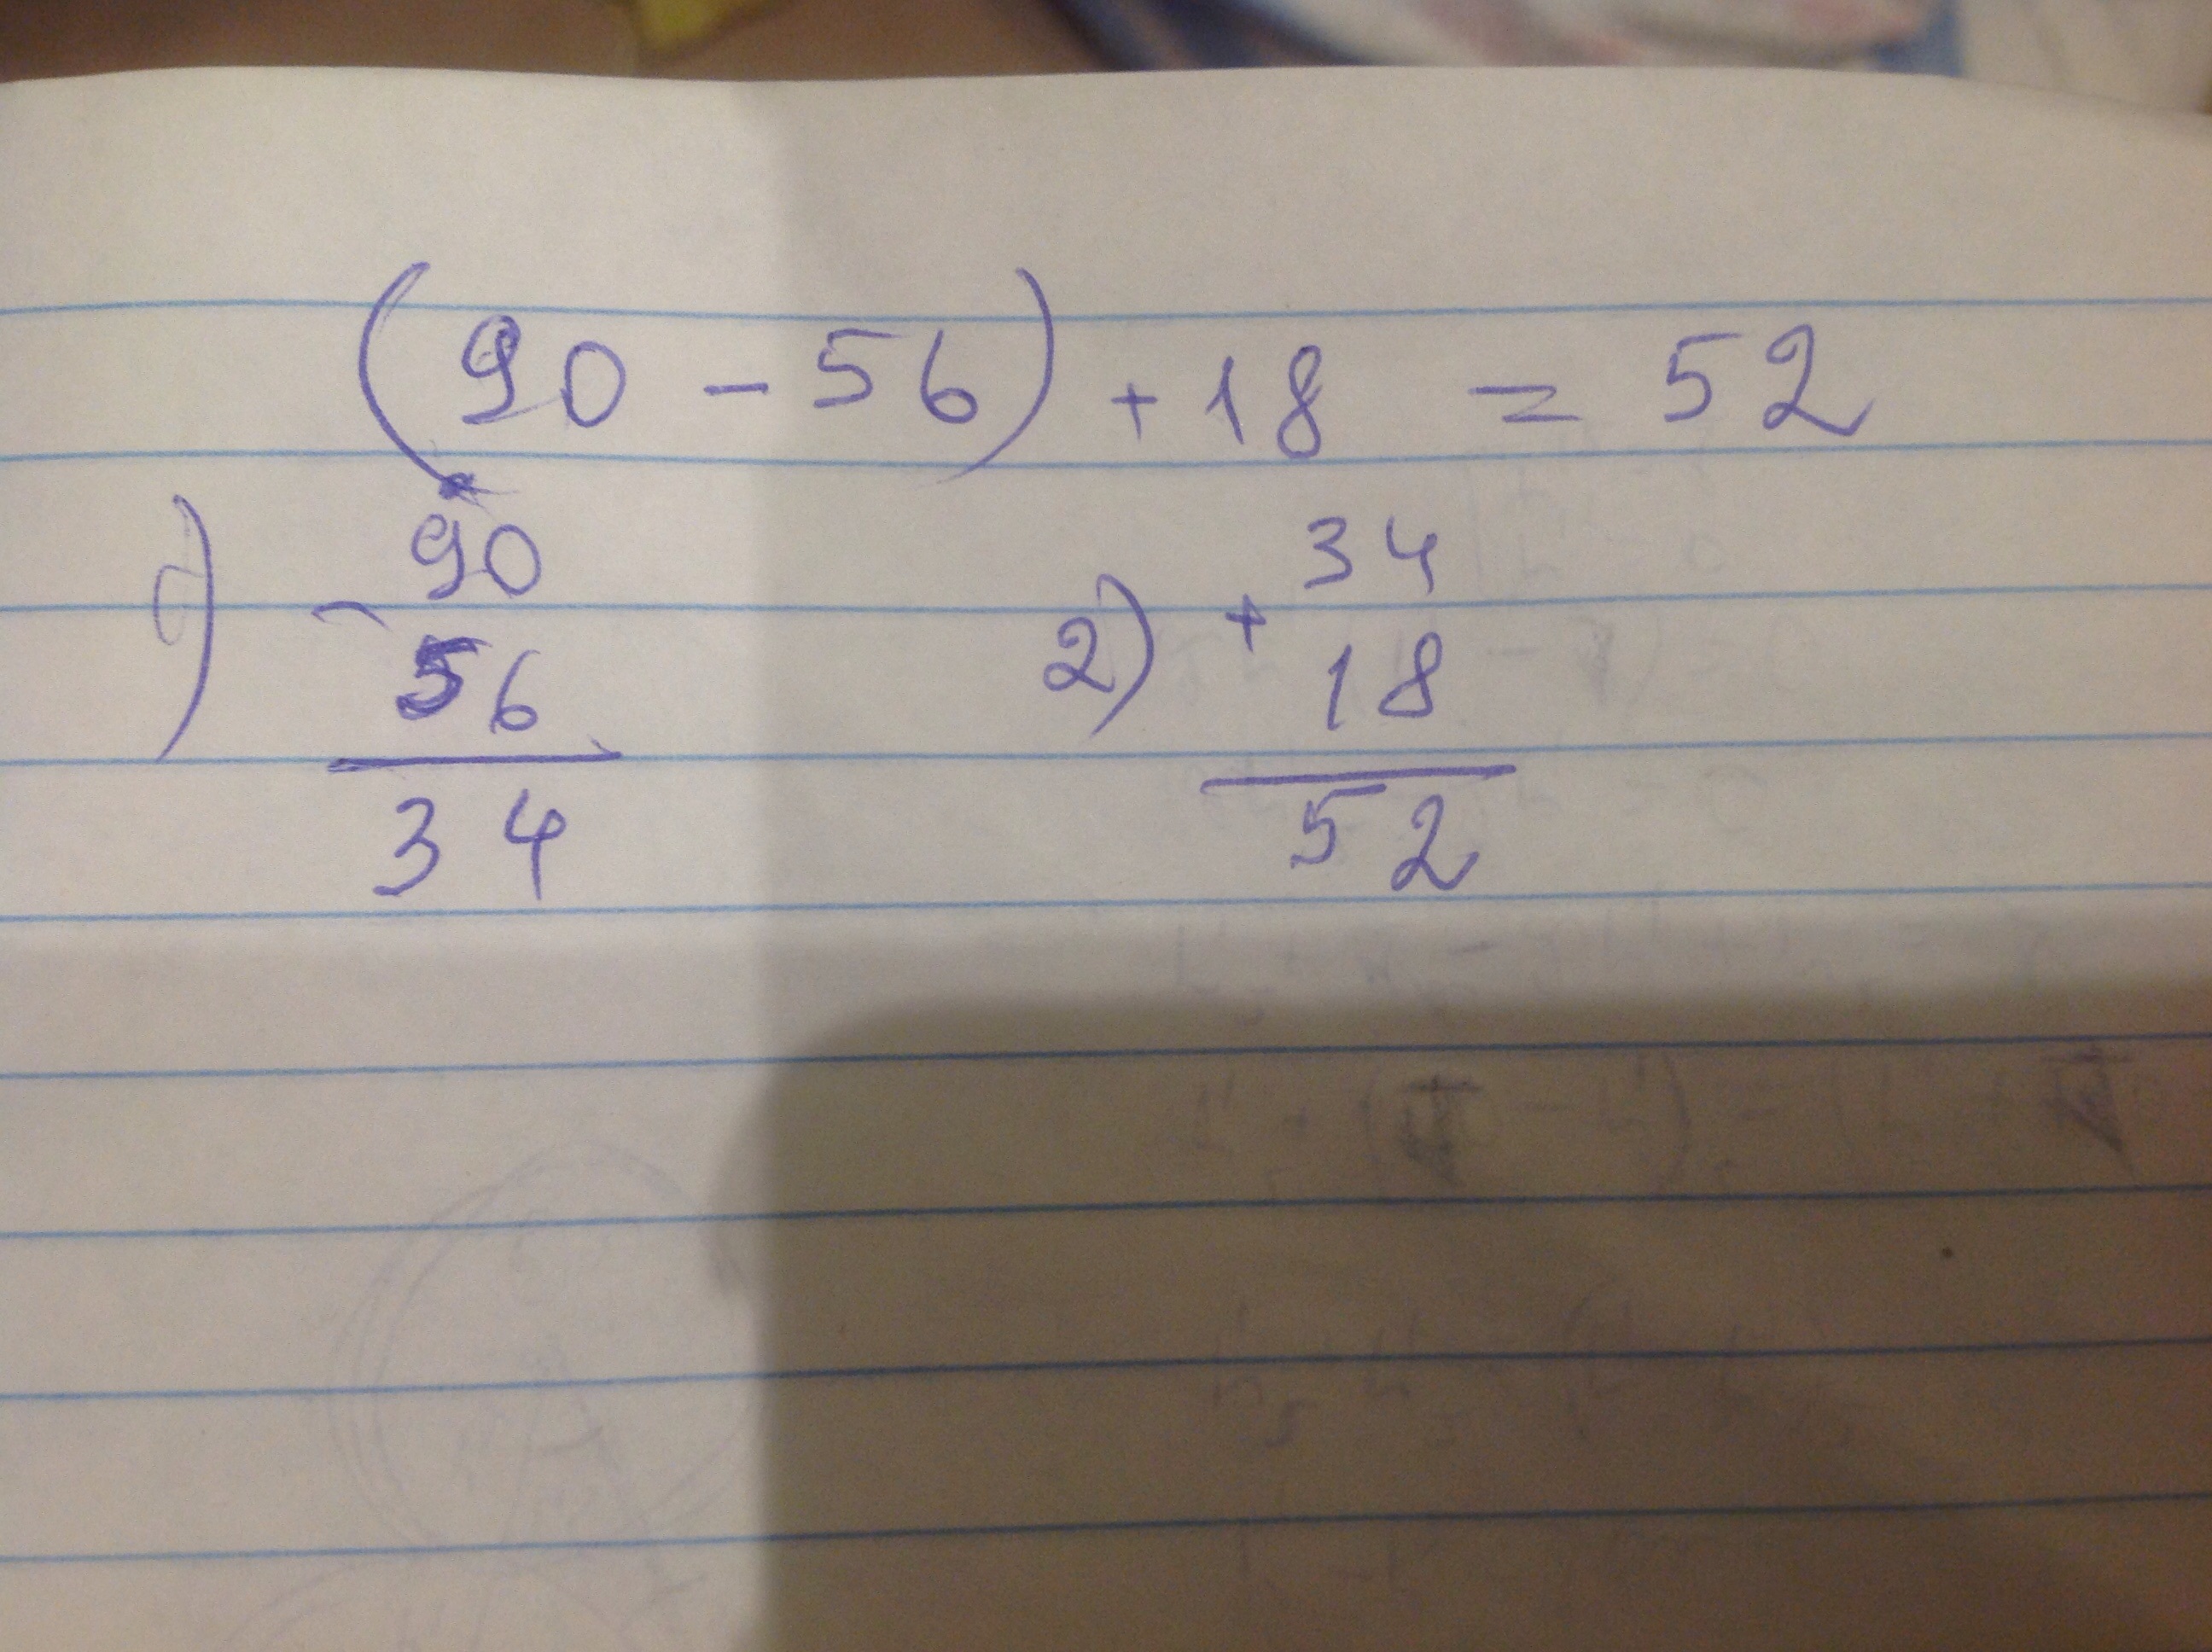 (90 - 56) + 18 = 52
1) 90
- 56
34
2) 34
+ 18
52